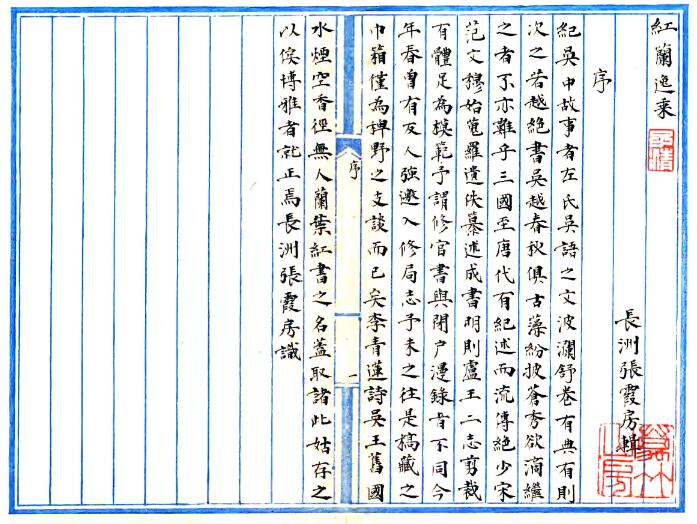 紅蘭逸乘
長洲張霞房輯
序
紀吳中故事者左氏吳語之文波瀾舒卷有典有則
次之若越絕書吳越春秋俱古藻紛披蒼秀欲滴繼
之者不亦難乎三國至唐代有紀述而流傳絕少宋
范文穆始蒐羅遺佚纂述成書明則盧王二志剪裁
有體足為模範予謂修官書與閉户漫錄者不同今
年春曾有友人強邀入修局志予未之往是稿藏之
巾箱僅為稗野之支談而已矣李青蓮詩吳王舊國
序
一
水煙空香徑無人蘭葉紅書之名蓋取諸此姑存之
以俟博雅者就正焉長洲張霞房識